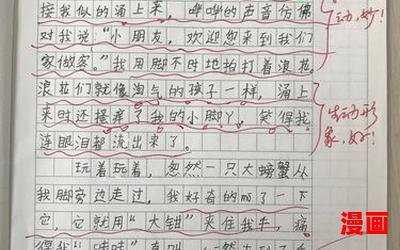 接我似的涌上来，哗哗的声音仿佛
对我说："小朋友，欢迎您来到我们
家做客。"我用脚不时地拍打着浪花。
浪花们就像淘气的孩子一样，涌上
来时还搔痒了我的小脚丫，笑得我
连眼泪都流出来了。
玩着玩着，忽然一只大螃蟹从
我脚旁边走过，我好奇的丽了一下
它，它就用"大钳"来住我手，痛
得我"哇哇"直叫
动，妙！
生动形
象，好！
漫画